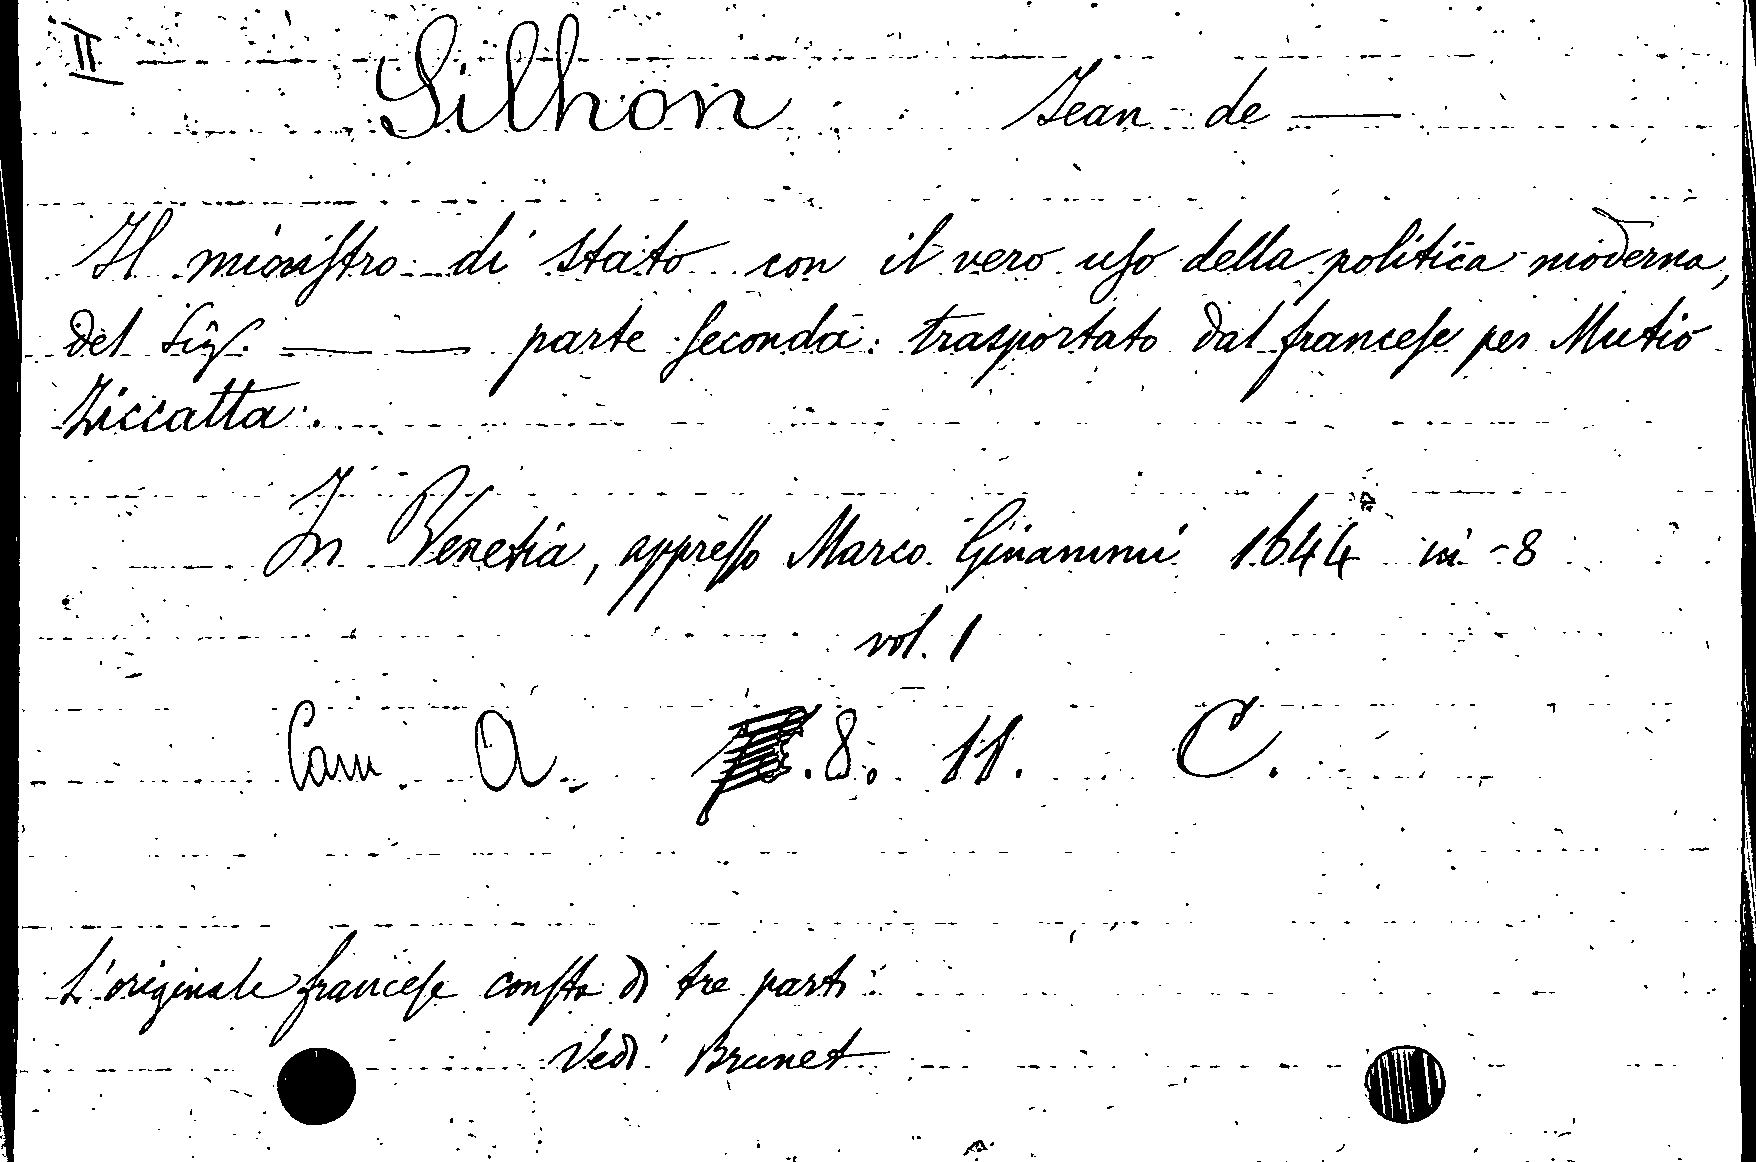 II
Silhon Jean de —
Il ministro di stato con il vero uso della politica moderna,
del Sig. — — parte seconda: trasportato dal francese per Mutio
Ziccatta.
In Venetia, appresso Marco Ginammi 1644 in-8
vol. 1
Cam. A. .8. 11. C.
L'originale francese consta di tre parti
Vedi Brunet